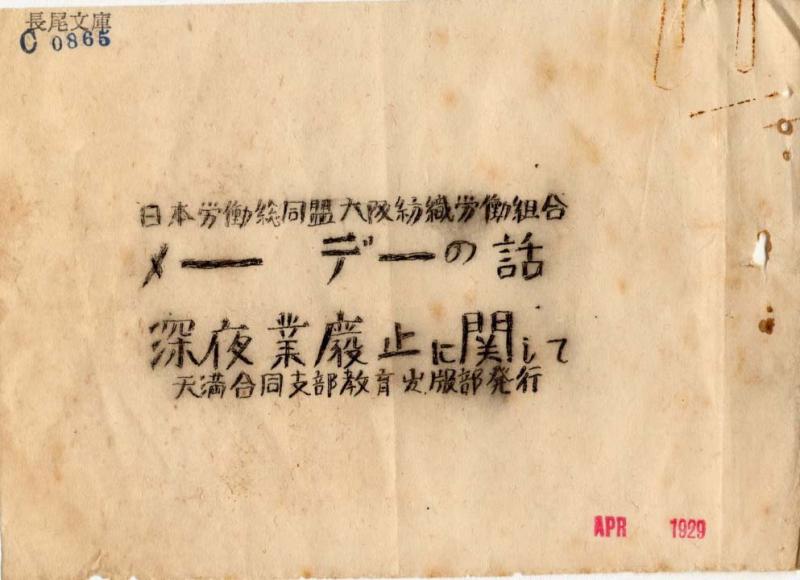 長尾文庫
C 0865
日本労働総同盟大阪紡織労働組合
メーデーの話
深夜業廢止に関して
天満合同支部教育出版部発行
APR 1929